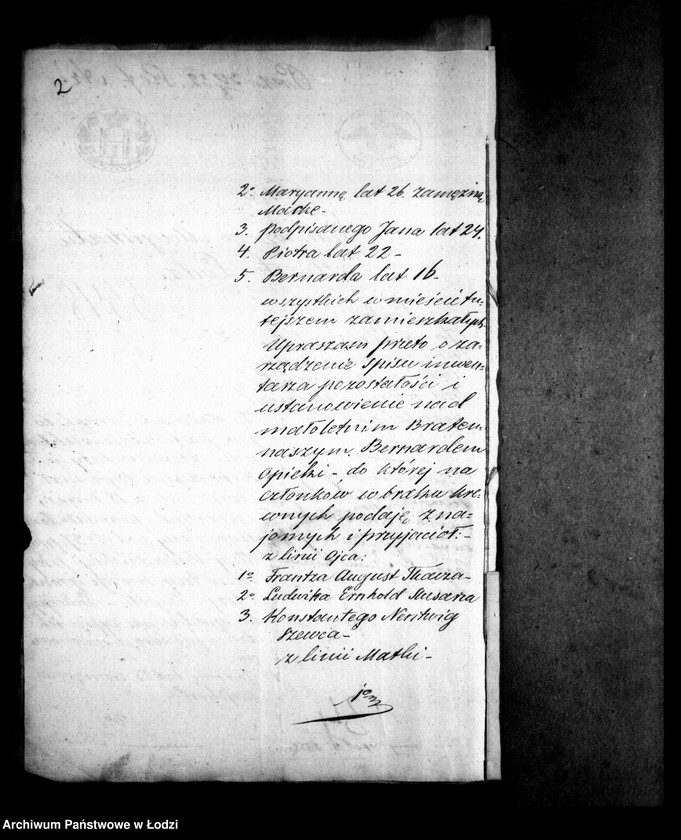 2
2o Maryannę lat 26. zamężną
Maske -
3. podpisanego Jana lat 24.
4. Piotra lat 22 -
5. Bernarda lat 16 -
wszystkich w mieście tu-
tejszem zamieszkałych.
Upraszam przeto o za-
rządzenie spisu inwen-
tarza pozostałości i
ustanowienie nad
małoletnim Bratem
naszym, Bernardem
opieki - do której na
członków w braku kre-
wnych podaję zna-
jomych i przyjaciół: -
z linii Ojca:
1o Frantza August Tkacza -
2o Ludwika Ernhold Slusarza
3. Konstantego Nentwig
szewca -
z linii Matki -
Archiwum Państwowe w Łodzi